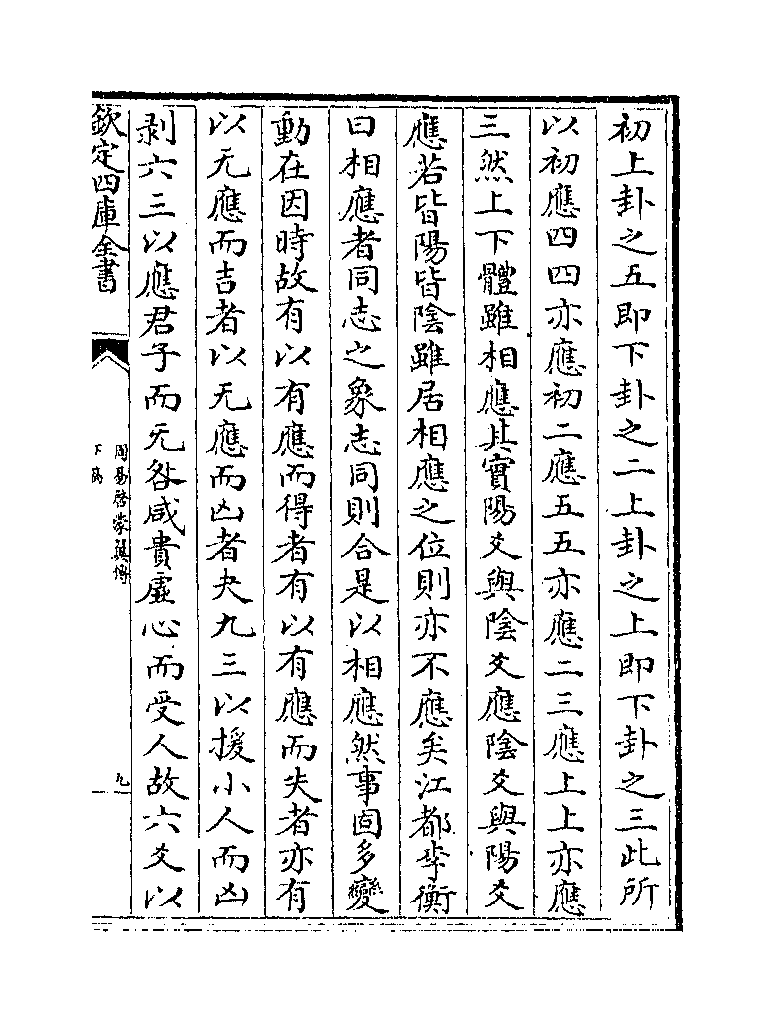 初上卦之五即下卦之二上卦之上即下卦之三此所
以初應四四亦應初二應五五亦應二三應上上亦應
三然上下體雖相應其實陽爻與陰爻應陰爻與陽爻
應若皆陽皆陰雖居相應之位則亦不應矣江都李衡
曰相應者同志之象志同則合是以相應然事固多變
動在因時故有以有應而得者有以有應而失者亦有
以无應而吉者以无應而凶者夬九三以援小人而凶
剥六三以應君子而无咎咸貴虛心而受人故六爻以
欽定四庫全書
周易啓蒙翼傳
下篇
九